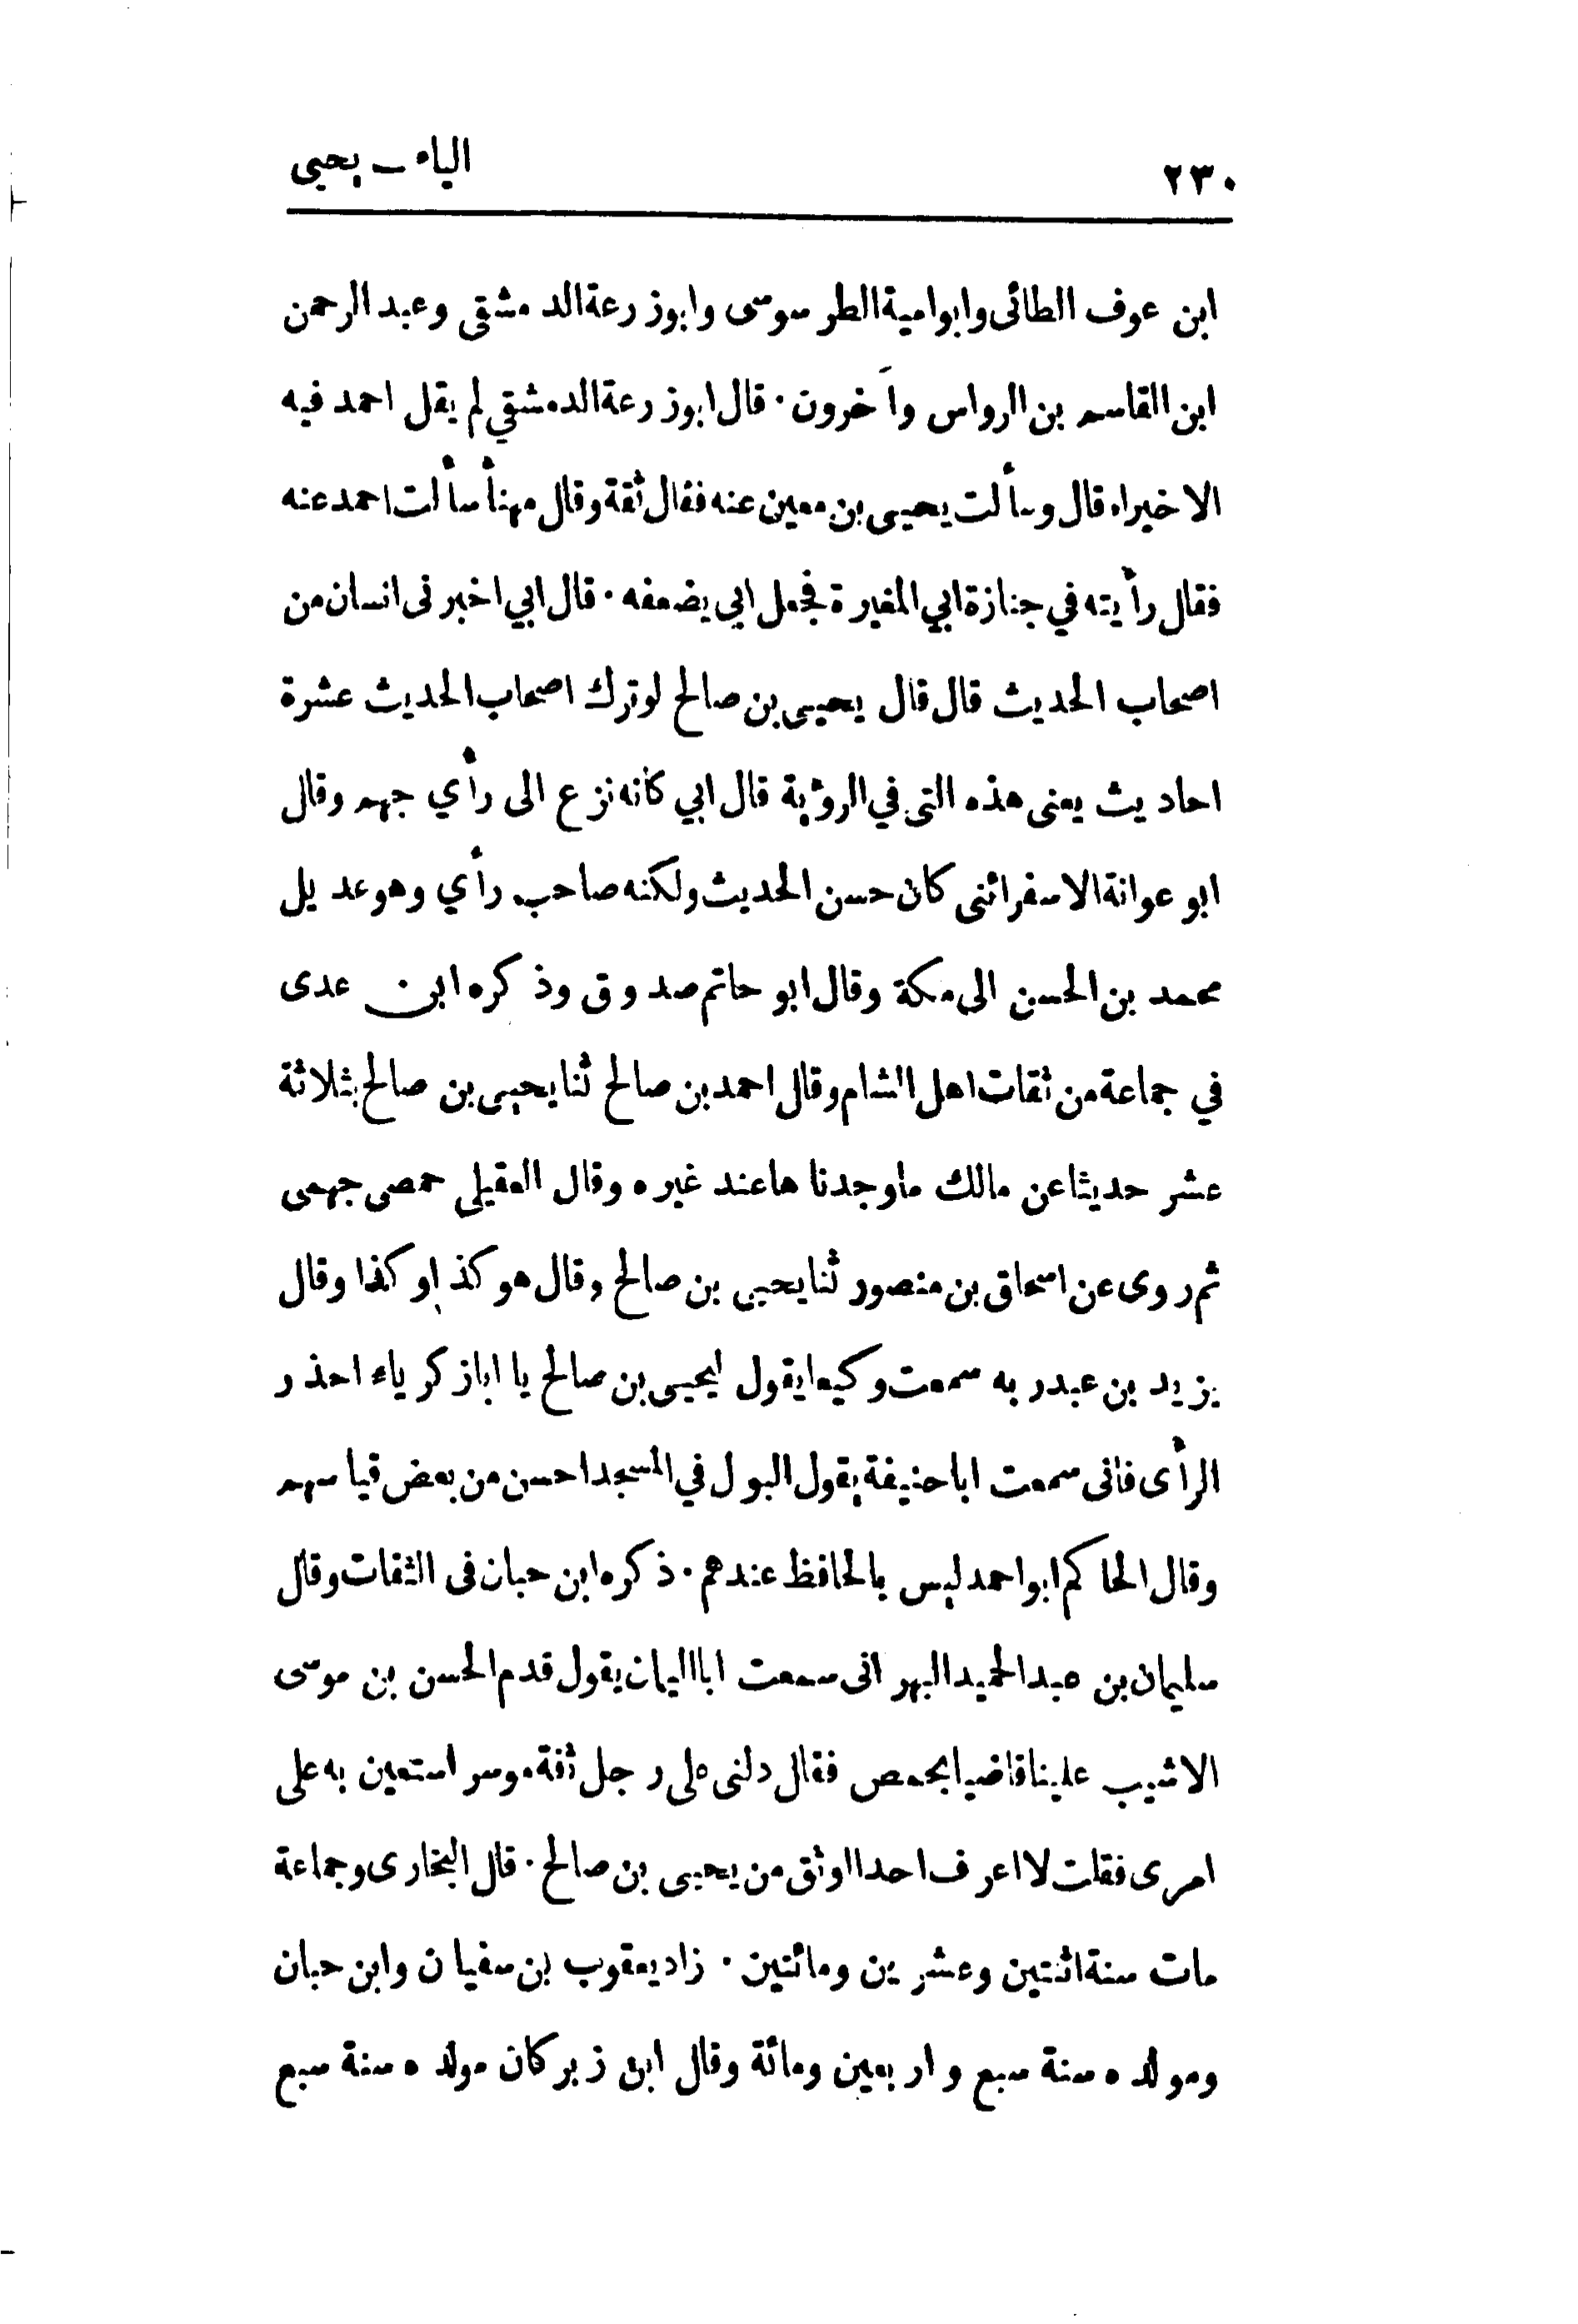 ٢٣٠
الياء – يحيى
ابن عوف الطائى وابوامية الطرسوسى وابوزرعة الدمشقى وعبد الرحمن
ابن القاسم بن الرواس وآخرون . قال ابوزرعة الدمشقي لم يقل احمد فيه
الاخيراه قال وسألت يحيى بن معين عنه فقال ثقة وقال مهنأ سألت احمد عنه
فقال رأيته في جنازة ابي المغيرة فجعل ابي يضعفه . قال ابي اخبرنى انسان من
اصحاب الحديث قال قال يحيى بن صالح لوترك اصحاب الحديث عشرة
احاديث يعنى هذه التى في الرؤية قال ابي كانه نزع الى رأي جهم وقال
ابو عوانة الاسفرائنى كان حسن الحديث ولكنه صاحب رأي وهو عديل
محمد بن الحسن الى مكة وقال ابو حاتم صدوق وذكره ابن عدى
في جماعة من ثقات اهل الشام وقال احمد بن صالح ثنا يحيى بن صالح بثلاثة
عشر حديثا عن مالك ماوجدنا هاعند غيره وقال العقيلى حمصى جهمى
ثم روى عن اسحاق بن منصور ثنا يحيى بن صالح وقال هو كذا وكذا وقال
يزيد بن عبدربه سمعت وكيعا يقول ليحيى بن صالح يا ابازكرياء احذر
الرأى فانى سمعت اباحنيفة يقول البول في المسجد احسن من بعض قياسهم
وقال الحاكم ابواحمد ليس بالحافظ عندهم . ذكره ابن حبان فى الثقات وقال
سليمان بن عبدالحميد البهرانى سمعت ابااليمان يقول قدم الحسن بن موسى
الاشيب علينا قاضيا بحمص فقال دلنى على رجل ثقة موسر استعين به على
امرى فقلت لا اعرف احدا اوثق من يحيى بن صالح . قال البخارى وجماعة
مات سنة اثنتين وعشرين ومائتين . زاد يعقوب بن سفيان وابن حبان
ومولده سنة سبع واربعين ومائة وقال ابن زبر كان مولده سنة سبع